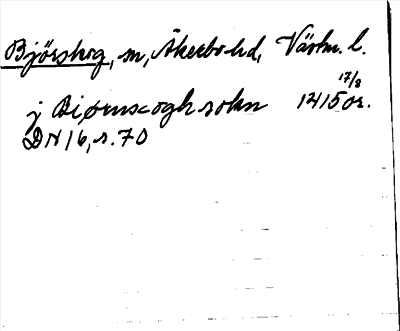 Björskog, sn, Åkerbo hd, Västm. l.
j Biørnscogh sokn 17/8 1415 or.
DN 16, s. 70